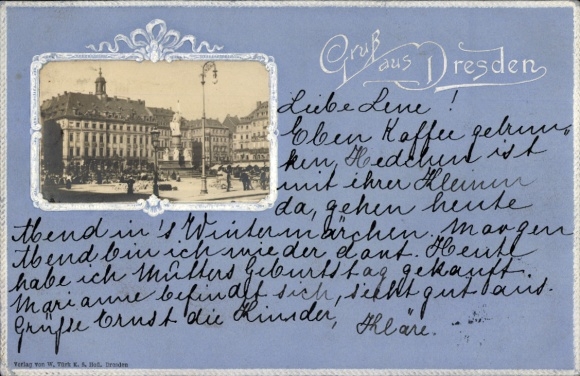 Gruß aus Dresden
Liebe Lene!
Eben Kaffee getrun-
ken, Hedchen ist
mit ihrer Kleinen
da, gehen heute
Abend in's Wintermärchen. Morgen
Abend bin ich wieder dort. Heute
habe ich Mutters Geburtstag gekauft.
Marianne befindet sich, sieht gut aus.
Grüße Ernst die Kinder, Kläre.
Verlag von W. K. S. Hofl. Dresden